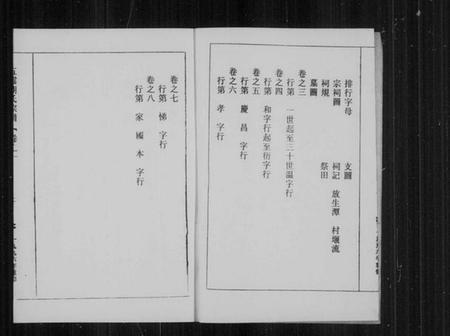 排行字母 支圖
宗祠圖 祠記 放生潭 村堰流
祠規 祭田
墓圖
卷之三
行第 一世起至三十世溫字行
卷之四
行第 和字行起至衍字行
卷之五
行第 慶 昌 字行
卷之六
行第 孝 字行
卷之七
行第 悌 字行
卷之八
行第 家 國 本 字行